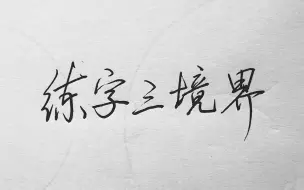 练字三境界